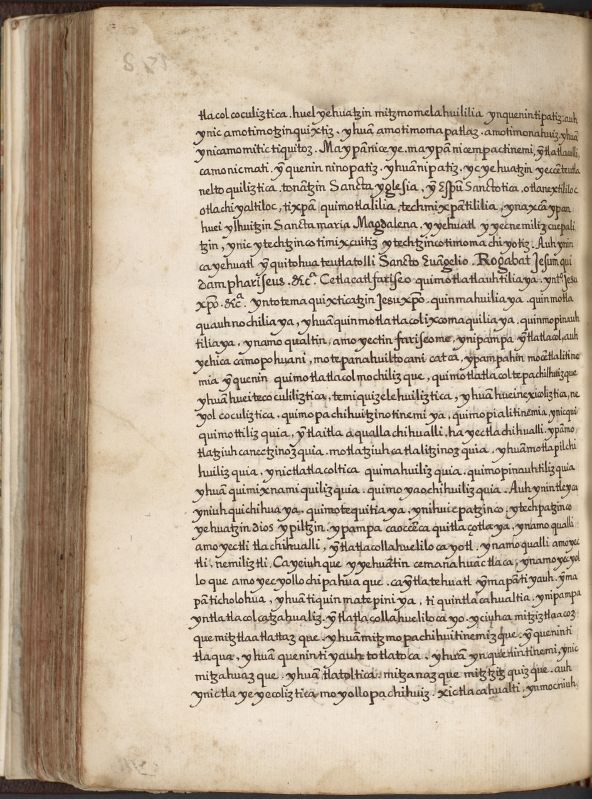 tlacolcoculiztica. huel yehuatzin mitzmomelahuililia ynquenintipatiz: auh
ynic amotimotzinquixtiz. yhuā amotimomapatlaz. amotimonahuiz, yhuā
ynicamo mitictiquitoz. Maypānice ye. maypānicempactinemi, ȳtlatlacolli,
camo nicmati. ȳquenin ninopatiz. yhuānipatiz. yc yehuatzin yecēn teutla
neltoquiliztica, tonātzin Sancta yglesia, ȳ Espū Sanctotica, otlanextililoc
otlachiyaltiloc, tixpā quimotlalilia, techmixpātililia, ynaxcā ypan
huei ylhuitzin Sancta maria Magdalena, yyehuatl yyecnemiliz cuepali
tzin, ynic ytechtzinco timixcuitiz ytechtzinco timomachiyotiz. Auh ynin
ca yehuatl ȳ quitohua teutlatolli Sancto Euāgelio. Rogabat Jesum, qui
dam phariseus. &cª. Ce tlacatl fariseo quimotlatlauhtilia ya. ynto Jesu
xpō. &cª. ynto temaquixticatzin Jesu xpō. quinmahuilia ya. quinmotla
quauhnochilia ya, yhuā quinmotlatlacolixcomaquilia ya, quinmopinauh
tilia ya, ynamo qualtin, amo yectin fariseome, ynipampa ȳtlatlacol, auh
yehica camo pohuani, motepanahuiltocani catca, ypāmpahin mocētlalitine
mia ȳquenin quimotlatlacolmochilizque, quimotlatlacoltepachilhuizque
yhuā huei tecoculiliztica, temiquizelehuiliztica, yhuā huei nexicoliztica, ne
yolcoculiztica, quimopachihuitzinotinemi ya, quimopialitinemia, ynicqui
quimottiliz quia, ȳtlaitla aqualla chihualli, ha yectlachihualli. ypāmo
tlatziuhcanectzinoz quia. motlatziuhcatlalitzinoz quia, yhuāmotlapilchi
huiliz quia, ynictlatlacoltica quimahuiliz quia, quimopinauhtiliz quia
yhuā quimixnamiquiliz quia. quimoyaochihuiliz quia. Auh ynintleyca
yniuh quichihua ya, quimotequitia ya, ynihuicpatzinco, ytechpatzinco
yehuatzin dios ypiltzin. ypampa ca ocēca quitlaçotla ya, ynamo qualli
amo yectli tlachihualli, ȳtlatlacollahuelilocayotl. ynamo qualli amo yec
tli nemiliztli. Ca yeiuhque yyehuātin cemanahuactlaca, ynamo yecyol
lo que amo yecyollochipahua que. ca ȳtla tehuatl ȳmapāti yauh. ȳma
pāticholohua, yhuā tiquinmatepinī ya, tiquintlacahualtia, ynipampa
yntlatlacolcatzahualiz. ȳtlatlacollahuelilocayo. yciuhca mitziztlacoz
que mitztlaatlattaz que. yhuā mitzmopachihuitinemiz que. ȳquenin ti
tlaqua. yhuā quenin tiyauh totlatoca. yhuān ynquetlintinemi, ynic
mitzahuaz que. yhuā tlatoltica. mitzanaz que mitztzitzquiz que. auh
ynictla yeyecoliztica moyollopachihuiz. xictlacahualti, ynmocniuh,